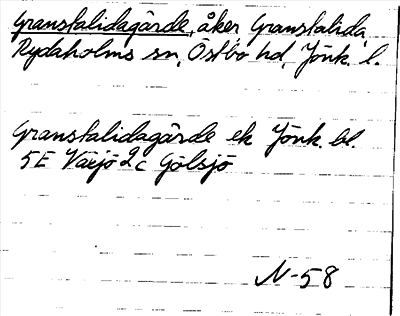 Granstalidagärde, åker, Granstalida,
Rydaholms sn, Östbo hd, Jönk. l.
Granstalidagärde ek Jönk. bl.
5E Växjö 2c Gölsjö
N-58